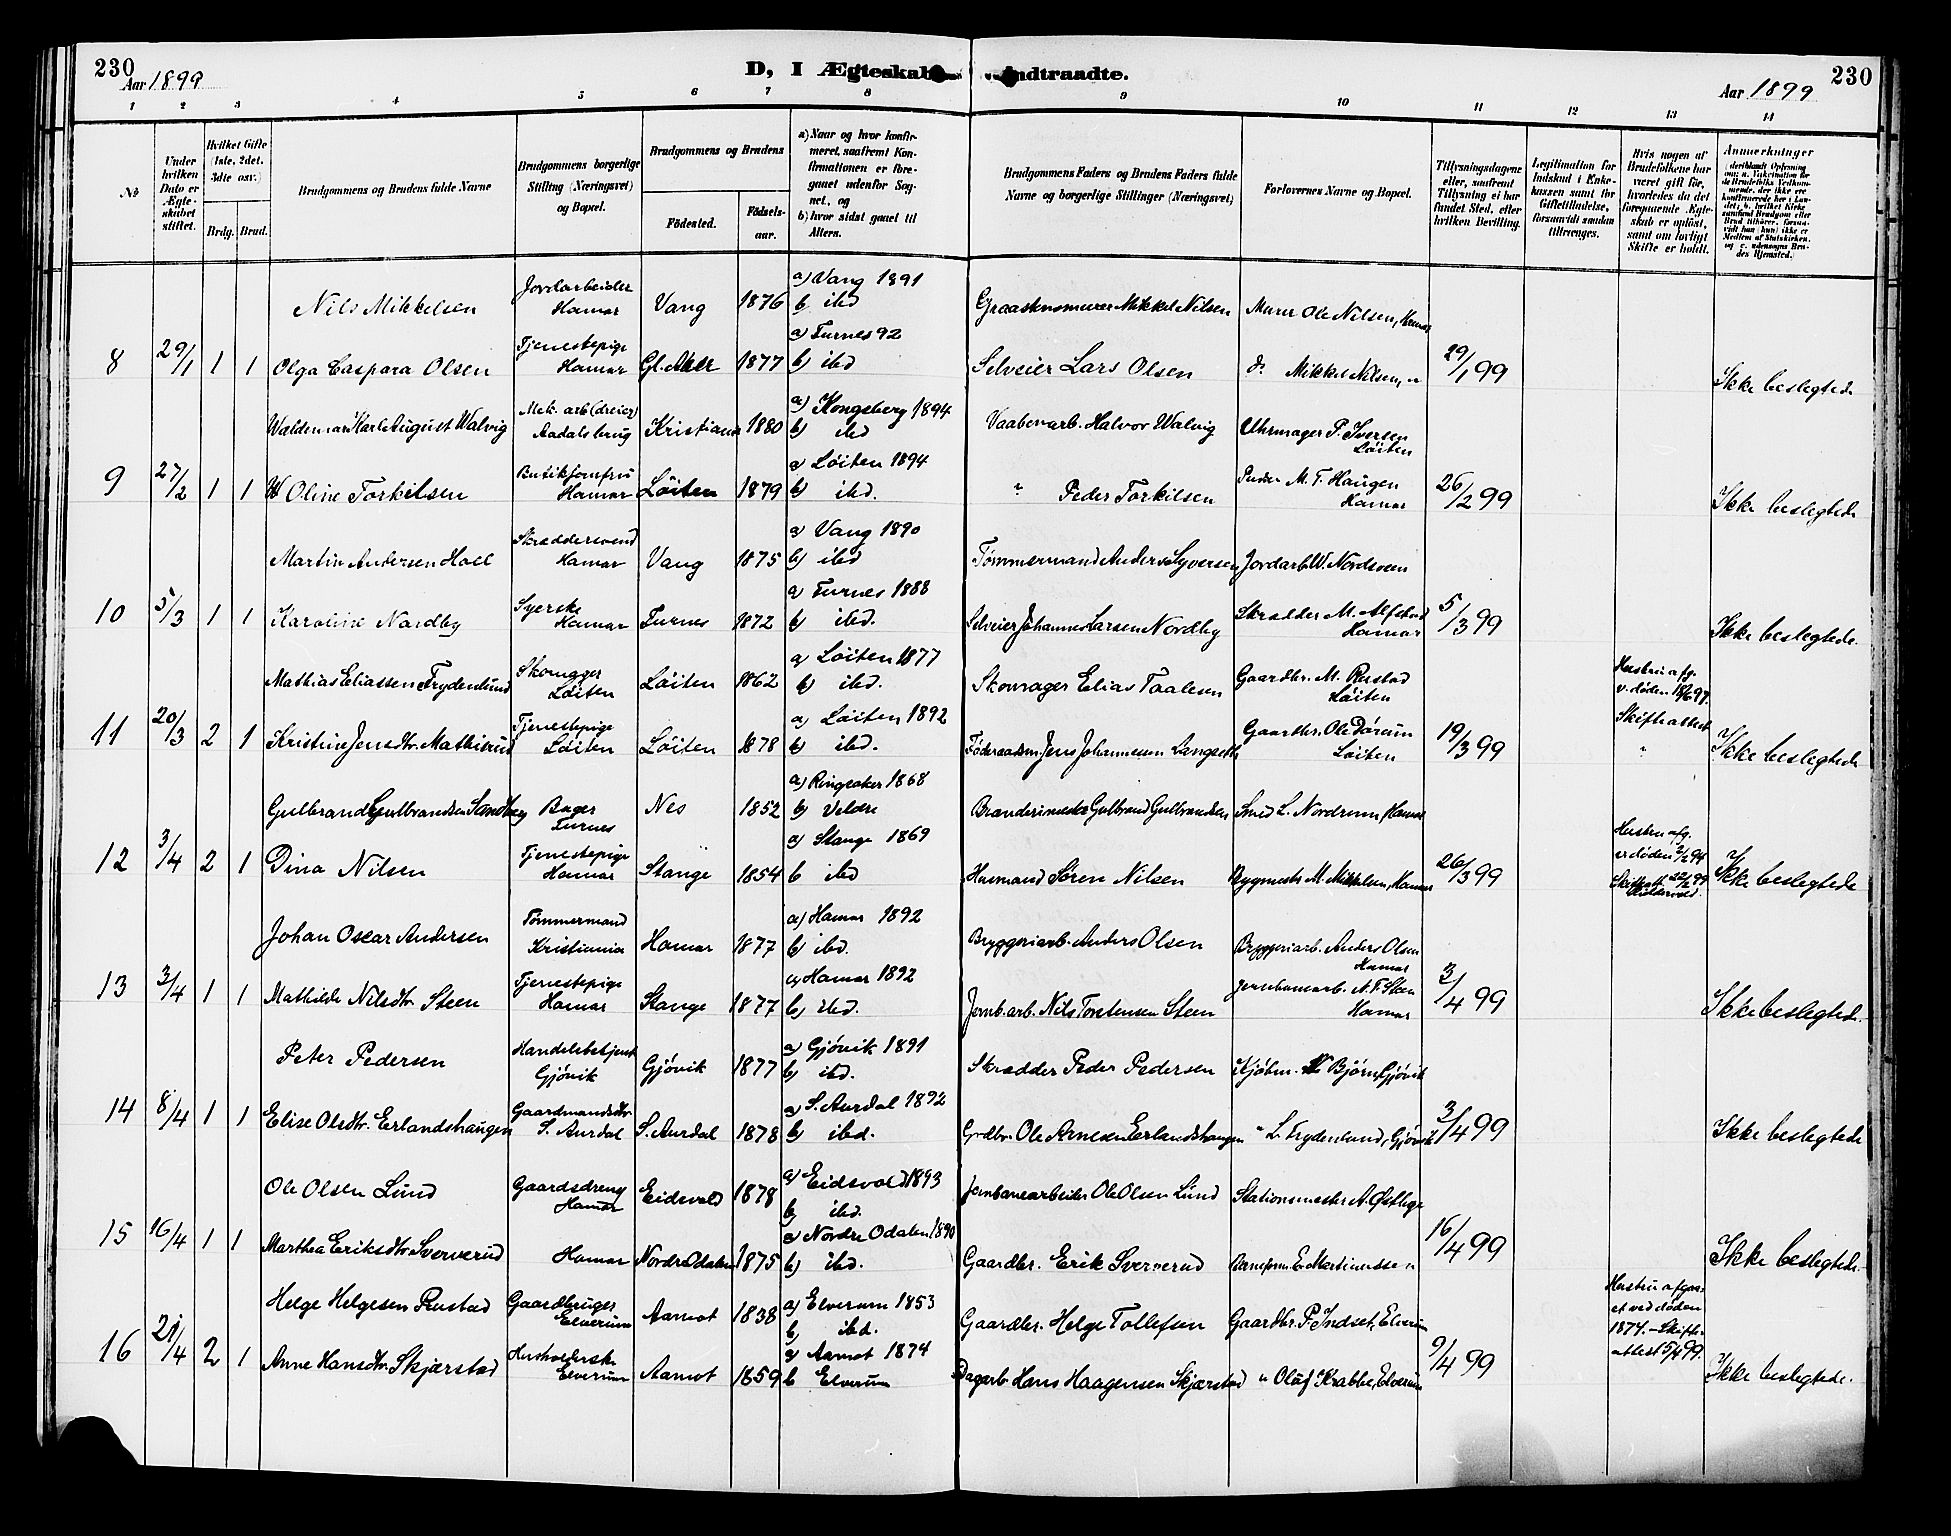 230
Aar 1899
D, I Ægteskab
Indtraadte.
Aar 1899
230
1 2 3 4 5 6 7 8 9 10 11 12 13 14
No
Under hvilken Dato er Ægteskabet stiftet.
Hvilket Gifte (1ste, 2det, 3dte osv.)
Brdg. Brud.
Brudgommens og Brudens fulde Navne
Brudgommens borgerlige Stilling (Næringsvei) og Bopæl.
Brudgommens og Brudens
Födested.
Födselsaar.
a) Naar og hvor konfirmeret, saafremt Konfirmationen er foregaaet udenfor Sognet, og
b) hvor sidst gaaet til Altern.
Brudgommens Faders og Brudens Faders fulde Navne og borgerlige Stillinger (Næringsvei)
Forlovernes Navne og Bopæl.
Tillysningsdagene eller, saafremt Tillysning ei har fundet Sted, efter hvilken Bevilling.
Legitimation for Indskud i Enkekassen samt for Giftetilladelse, forsaavidt saadan tiltrænges.
Hvis nogen af Brudefolkene har været gift för, hvorledes da det foregaaende Ægteskab er oplöst, samt om lovligt Skifte er holdt.
Anmærkninger
Nils Mikkelsen Jordarbeider Hamar Vang 1876 a) Vang 1891 b) ibd Graastensmurer Mikkel Nilsen Murer Ole Nilsen, Hamar
8 29/1 1 1 Olga Caspara Olsen Tjenestepige Hamar Gl. Aker 1877 a) Furnes 92 b) ibd Selveier Lars Olsen do Mikkel Nilsen, " 29/1 99 Ikke beslegtede
Waldemar Karl August Walvig Mek. arb (dreier) Aadalsbrug Kristiania 1880 a) Kongsberg 1894 b) ibd Vaabenarb. Halvor Walvig Uhrmager P. Iversen Löiten
9 27/2 1 1 Oline Torkilsen Butikjomfru Hamar Löiten 1879 a Löiten 1894 b) ibd. " Peder Torkilsen M. T. Haugen Hamar 26/2 99 Ikke beslegtede
Martin Andersen Holl Skræddersvend Hamar Vang 1875 a) Vang 1890 b) ibd Tömmermand Anders Syversen Jordarb. W. Nordsveen
10 5/3 1 1 Karoline Nordby Syerske Hamar Furnes 1872 a Furnes 1888 b) ibd. Selveier Johannes Larsen Nordby Skrædder M. Alfstad Hamar 5/3 99 Ikke beslegtede.
Mathias Eliassen Frydenlund Skomager Löiten Löiten 1862 a) Löiten 1877 b) ibd. Skomager Elias Taalesen Gaardbr. M. Rustad Löiten Hustru afg. v. döden
11 20/3 2 1 Kristine Jensdtr. Mathisrud Tjenestepige Löiten Löiten 1878 a) Löiten 1892 b) ibd. Föderaadsm. Jens Johannesen Langseth Gaardbr. Ole Dörum Löiten 19/3 99 Skifteattest " Ikke beslegtede
Gulbrand Gulbrandsen Sandberg Bager Furnes Nes 1852 a) Ringsaker 1868 b) Veldre Branderimester Gulbrand Gulbrandsen Smed L. Nordrum, Hamar
12 3/4 2 1 Dina Nilsen Tjenestepige Hamar Stange 1854 a) Stange 1869 b ibd Husmand Sören Nilsen Bygmester M. Mikkelsen, Hamar 26/3 99 Hustru afg. v döden 2/2 94 Skifteatt. 22/2 99 Ikke beslegtede
Johan Oscar Andersen Tömmermand Kristiania Hamar 1877 a) Hamar 1892 b) ibd. Bryggeriarb. Anders Olsen Bryggeriarb. Anders Olsen Hamar
13 3/4 1 1 Mathilde Nilsdtr. Steen Tjenestepige Hamar Stange 1877 a) Hamar 1892 b) ibd. Jernb. arb. Nils Torstensen Steen Jernbanearb. N. T. Steen Hamar 3/4 99 Ikke beslegtede.
Peter Pedersen Handelsbetjent Gjövik Gjövik 1877 a) Gjövik 1891 b) ibd. Skrædder Peder Pedersen Kjöbm. Björn, Gjövik
14 8/4 1 1 Elise Olsdtr. Erlandshaugen Gaardmandsdtr. S. Aurdal S. Aurdal 1878 a) S. Aurdal 1892 b) ibd. Grdbr. Ole Arnesen Erlandshaugen " L. Frydenlund, Gjövik 3/4 99 Ikke beslegtede
Ole Olsen Lund Gaardsdreng Hamar Eidsvold 1878 a) Eidsvold 1893 b) ibd. Jernbanearbeider Ole Olsen Lund Stationsmester A. Østbye
15 16/4 1 1 Marthea Eriksdtr Sververud Hamar Nordre Odalen 1875 a) Nordre Odalen 1890 b) ibd. Gaardbr. Erik Sververud Baneform. E. Martinussen 16/4 99 Ikke beslegtede.
Helge Helgesen Rustad Gaardbruger Elverum Aamot 1838 a) Elverum 1853 b) ibd. Gaardbr. Helge Tollefsen Gaardbr. P. Indset, Elverum Hustru afgaaet ved döden
16 21/4 2 1 Anne Hansdtr. Skjærstad Husholderske Elverum Aamot 1859 a) Aamot 1874 b Elverum Dagarb. Hans Haagensen Skjærstad " Oluf Krabbe, Elverum 9/4 99 1874. - Skifteattest 5/4 99. Ikke beslegtede.